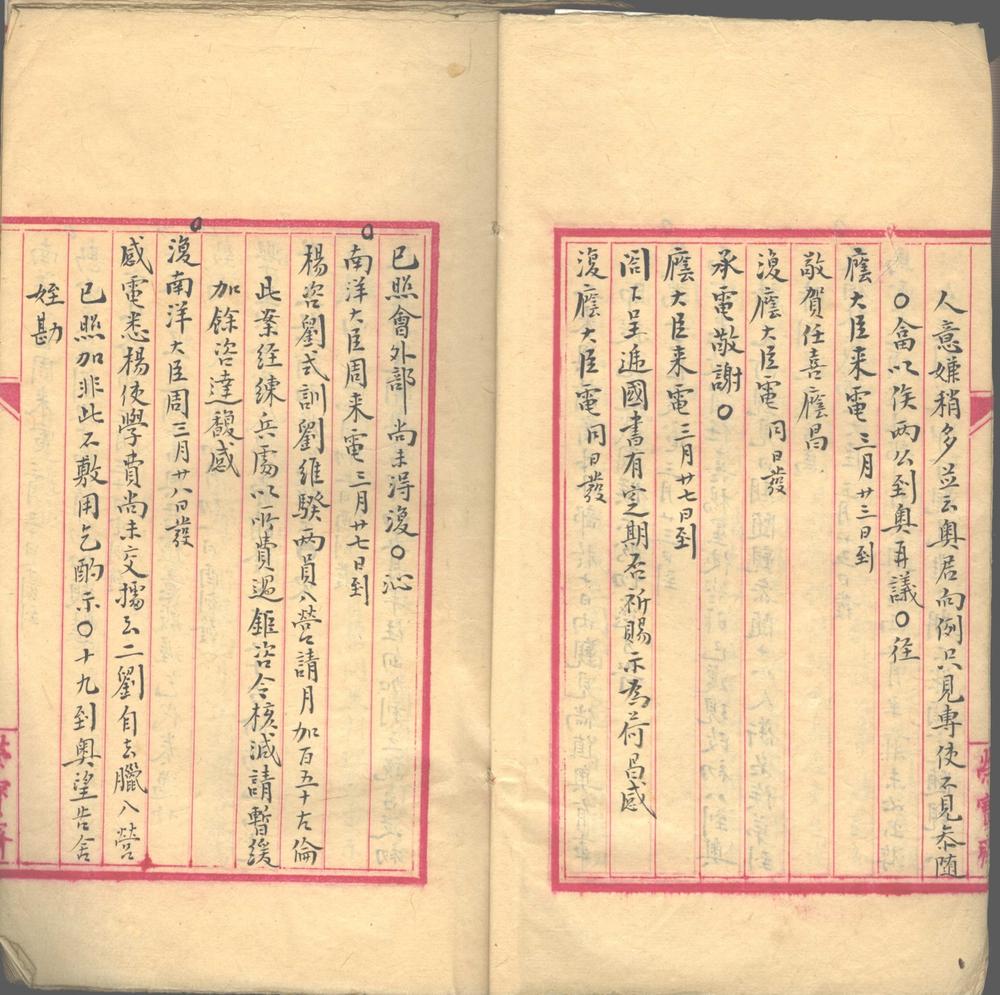 人意嫌稍多並云奧君向例只見專使不見參隨
〇畣以俟兩公到奧再議〇往
廕大臣来電三月廿三日到
敬賀任喜廕昌
復廕大臣電同日發
承電敬謝〇
廕大臣来電三月廿七日到
閤下呈遞國書有定期否祈賜示為荷昌感
復廕大臣電同日發
已照會外部尚未淂復〇沁
南洋大臣周来電三月廿七日到
楊咨劉式訓劉維騤兩員入營請月加百五十古倫
此案经練兵處以所費過鉅咨令核減請暫緩
加餘咨達馥感
復南洋大臣周三月廿八日發
感電悉楊使學費尚未交擂云二劉自去臘入營
已照加非此不敷用乞酌示〇十九到奧望告舍
姪勘